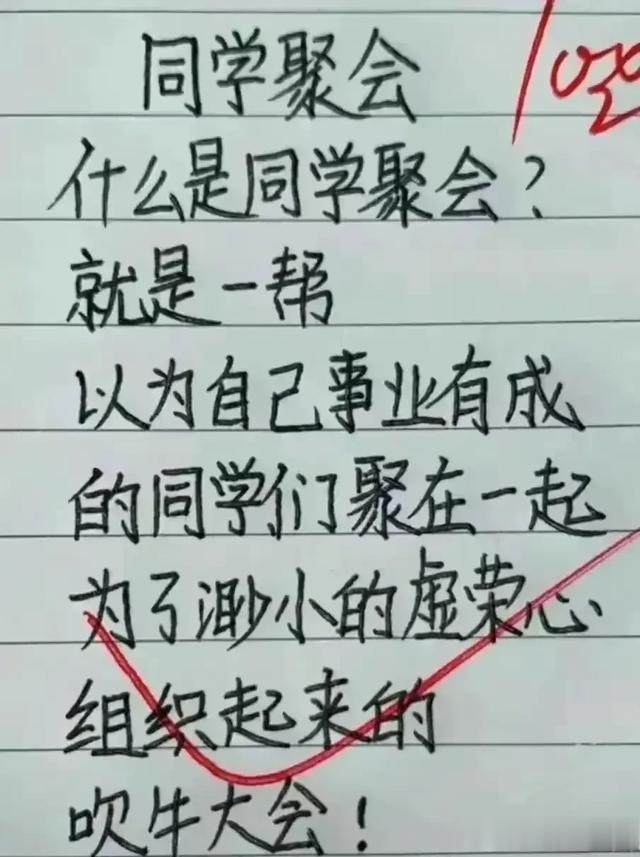 同学聚会
什么是同学聚会？
就是一帮
以为自己事业有成
的同学们聚在一起
为了渺小的虚荣心
组织起来的
吹牛大会！